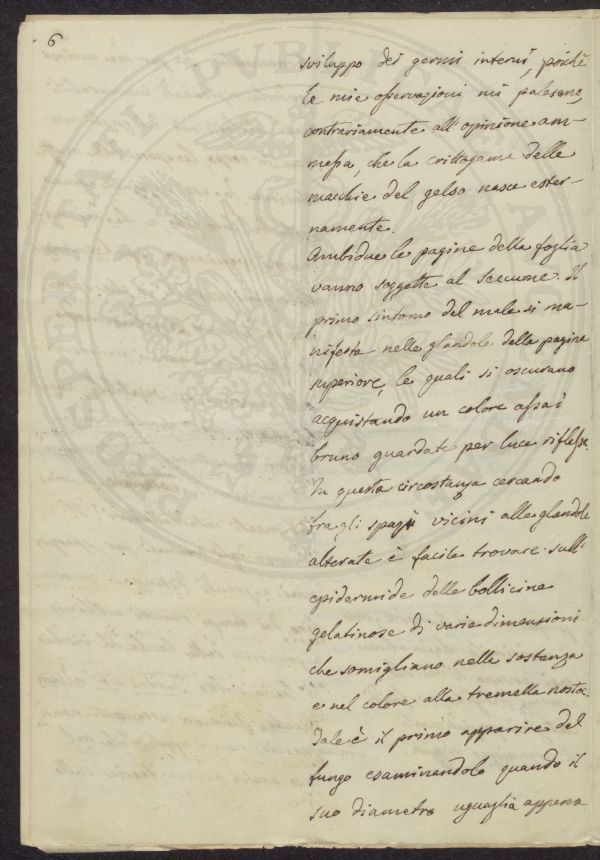 6
sviluppo dei germi interni, poichè
le mie osservazioni mi palesano,
contrariamente all'opinione am-
messa, che la crittogama delle
macchie del gelso nasce ester-
namente.
Ambidue le pagine della foglia
vanno soggette al seccume. Il
primo sintomo del male si ma-
nifesta nelle glandole della pagina
superiore, le quali si oscurano
acquistando un colore assai
bruno guardate per luce riflessa.
In questa circostanza cercando
fra gli spazj vicini alle glandole
alterate è facile trovare sull'
epidermide delle bollicine
gelatinose di varie dimensioni
che somigliano nella sostanza
e nel colore alla tremella nostoc.
Tale è il primo apparire del
fungo esaminandolo quando il
suo diametro uguaglia appena